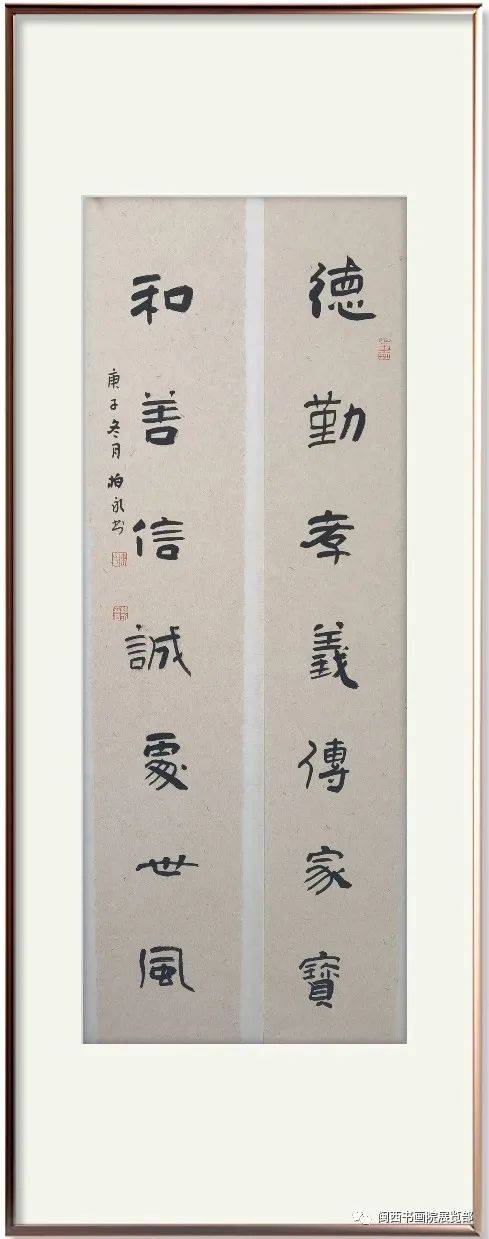 德勤孝義傳家寶
和善信誠處世風
庚子冬月柏永书
闽西书画院展览部